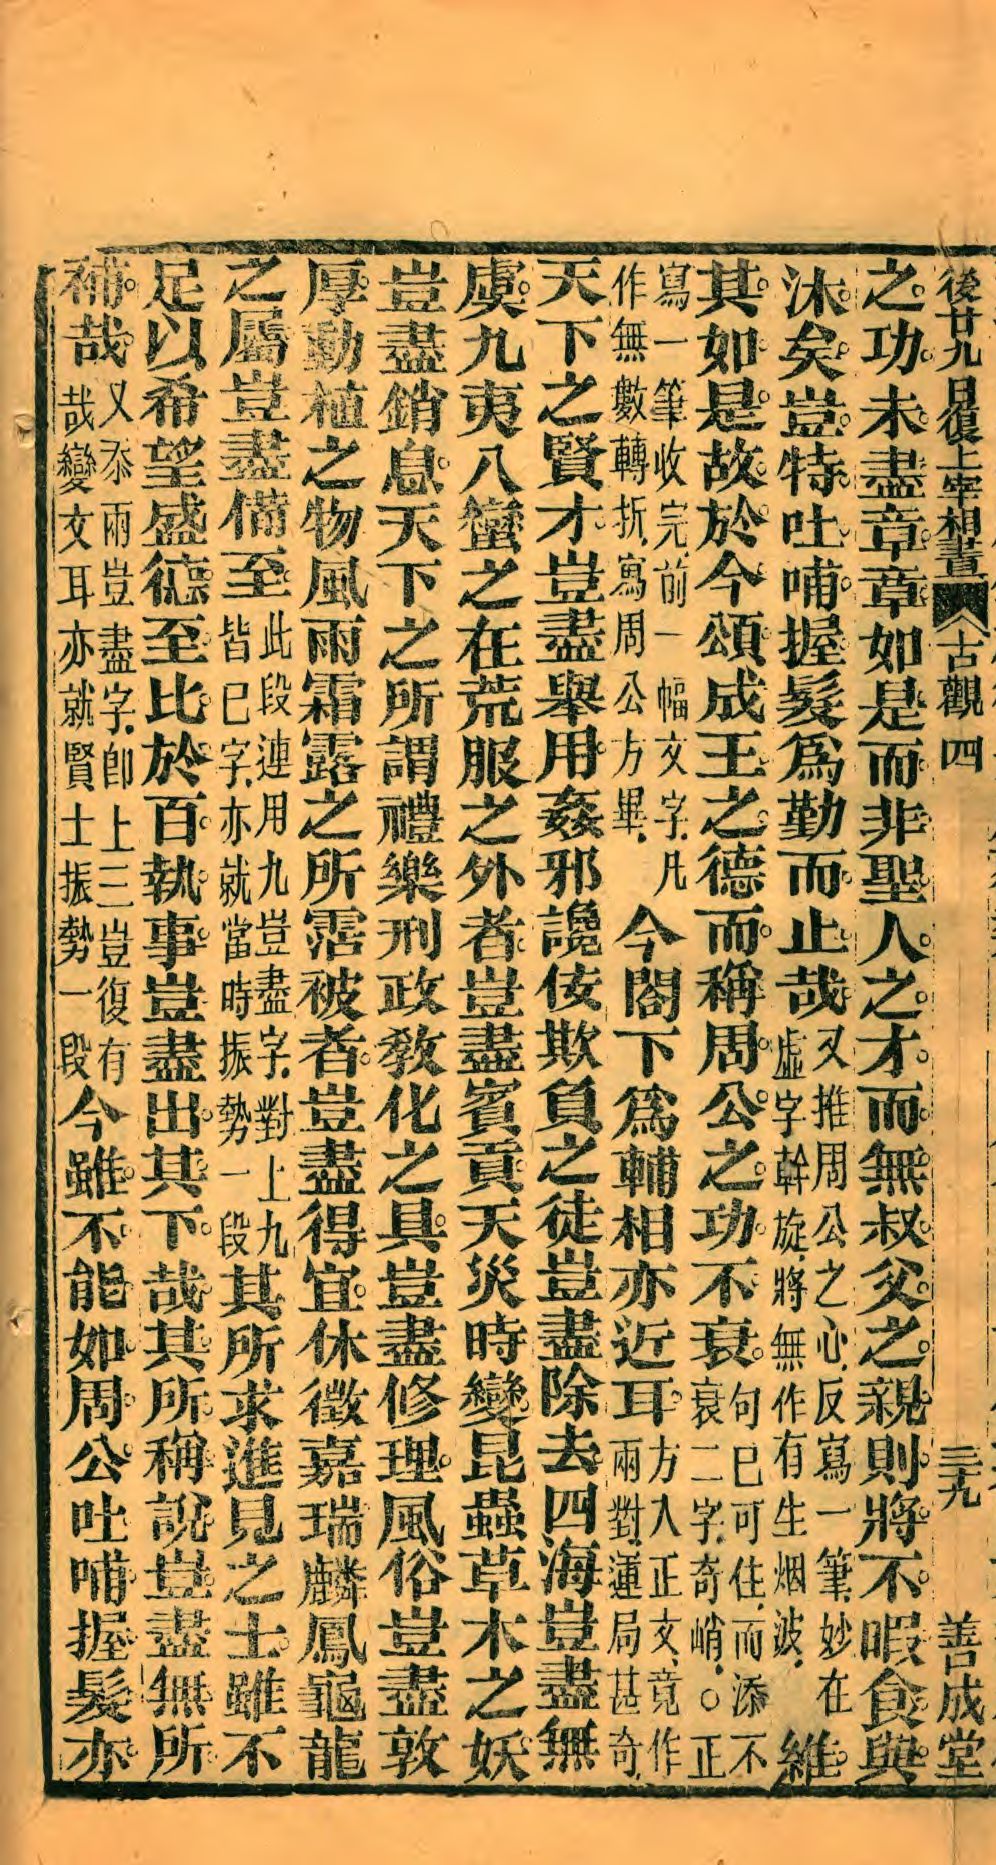 後廿九日復上宰相書 古觀 四 三十九 善成堂
之功未盡章章如是而非聖人之才而無叔父之親則將不暇食與
沐矣豈特吐哺握髮爲勤而止哉又推周公之心反寫一筆妙在虛字幹旋將無作有生烟波維
其如是故於今頌成王之德而稱周公之功不衰句已可住而添不衰二字奇峭○正
寫一筆收完前一幅文字凡作無數轉折寫周公方畢今閣下爲輔相亦近耳方入正文竟作兩對運局甚奇
天下之賢才豈盡舉用姦邪讒佞欺負之徒豈盡除去四海豈盡無
虞九夷八蠻之在荒服之外者豈盡賓貢天災時變昆蟲草木之妖
豈盡銷息天下之所謂禮樂刑政敎化之具豈盡修理風俗豈盡敦
厚動植之物風雨霜露之所霑被者豈盡得宜休徵嘉瑞麟鳳龜龍
之屬豈盡備至此段連用九豈盡字對上九皆已字亦就當時振勢一段其所求進見之士雖不
足以希望盛德至比於百執事豈盡出其下哉其所稱說豈盡無所
補哉又添兩豈盡字卽上三豈復有哉變文耳亦就賢士振勢一段今雖不能如周公吐哺握髮亦